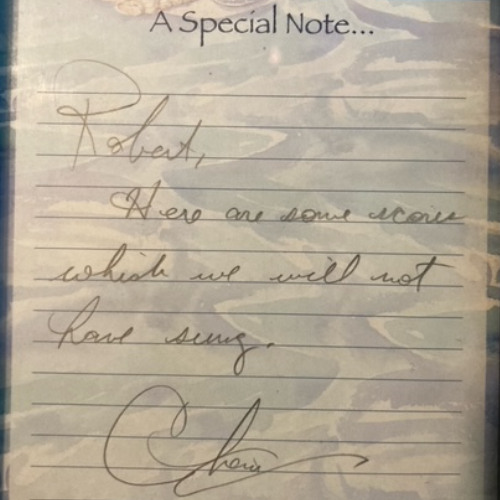 A Special Note...
Robert,
Here are some scores
which we will not
have sung.